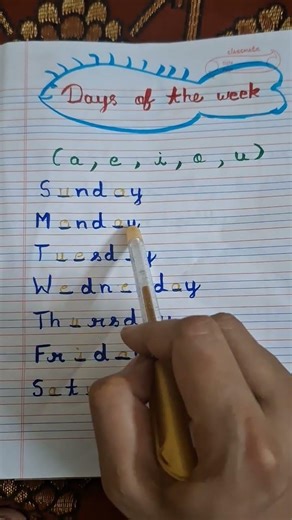 classmate
Days of the week
(a, e, i, o, u)
Sunday
Monday
Tuesd y
Wedne day
Thursd
Frida
Sat